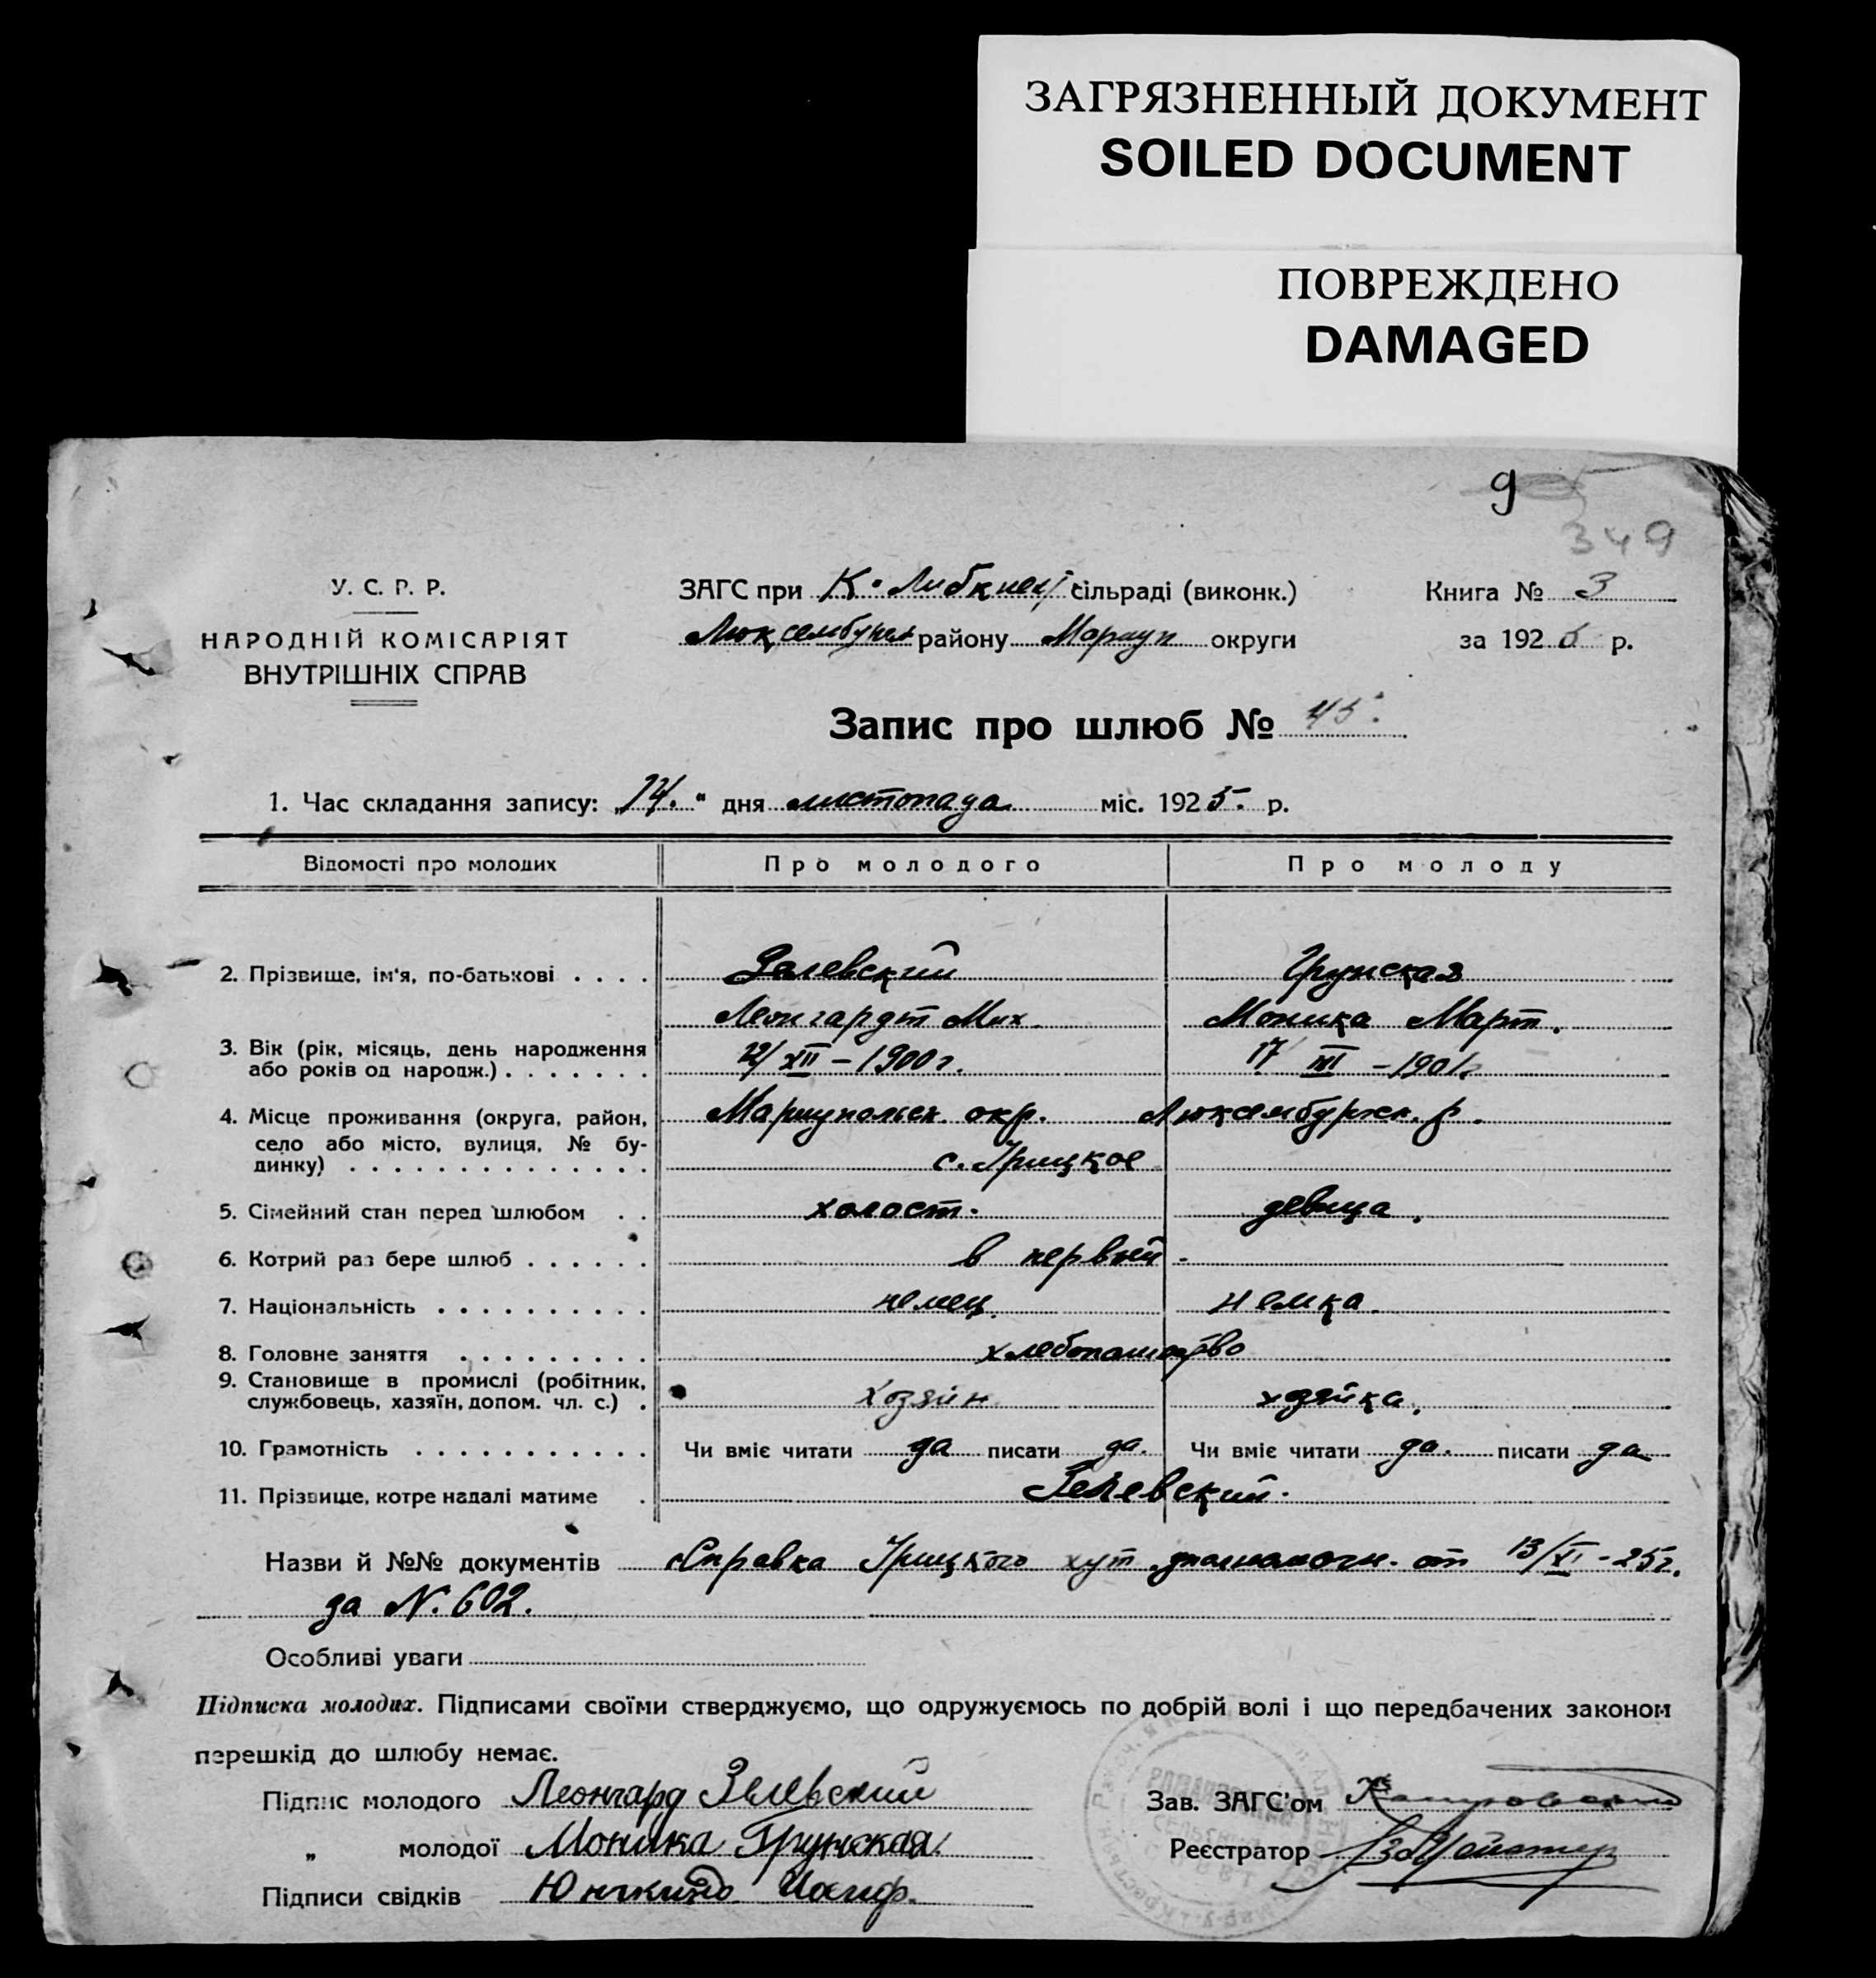 ЗАГРЯЗНЕННЫЙ ДОКУМЕНТ
SOILED DOCUMENT
ПОВРЕЖДЕНО
DAMAGED
9
349
У. С. Р. Р.
НАРОДНІЙ КОМІСАРІЯТ
ВНУТРІШНІХ СПРАВ
ЗАГС при К. Либкнех сільраді (виконк.)
району Мариуп округи
Книга № 3
за 1925 р.
Запис про шлюб № 45.
1. Час складання запису: „14." дня листопада міс. 1925. р.
Відомості про молодих Про молодого Про молоду
2. Прізвище, ім'я, по-батькові . . . . Зелевский Грунская
Леонгардт Мих. Моника Март.
3. Вік (рік, місяць, день народження
або років од народж.) . . . . . . . 12/XII – 1900 г. 17 III – 1901 г.
4. Місце проживання (округа, район,
село або місто, вулиця, № бу-
динку) . . . . . . . . . . . . . . Мариупольск. окр. Люксембуржк. р.
с. Урицкое
5. Сімейний стан перед шлюбом . . холост. девица.
6. Котрий раз бере шлюб . . . . . . в первый.
7. Національність . . . . . . . . . . немец. немка.
8. Головне заняття . . . . . . . . . хлебопашество
9. Становище в промислі (робітник,
службовець, хазяїн, допом. чл. с.) . хозяин хозяйка.
10. Грамотність . . . . . . . . . . . Чи вміє читати да писати да. Чи вміє читати да. писати да
11. Прізвище, котре надалі матиме . Зелевский.
Назви й №№ документів Справка Урицкого хут от 13/XI - 25 г.
за N. 602.
Особливі уваги
Підписка молодих. Підписами своїми стверджуємо, що одружуємось по добрій волі і що передбачених законом
перешкід до шлюбу немає.
Підпис молодого Леонгард Зелевский
„ молодої Моника Грунская
Підписи свідків Иосиф.
Зав. ЗАГС'ом
Реєстратор